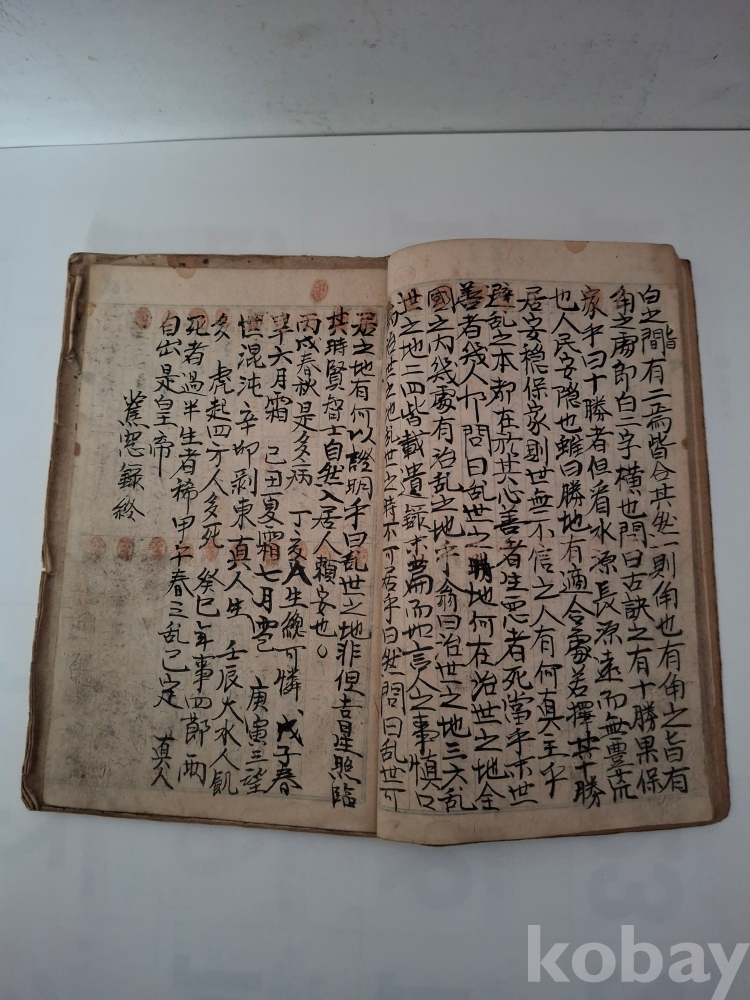 白之間有二焉皆合其然一則角也有角之旨有
旨
角之處即白三字橫也問曰古訣之有十勝果保
家乎曰十勝者但看水源長源遠而無豊荒
也人民安隐也雖曰勝地有適合處若擇其十勝
居安穩保家則世無不信之人有何真主乎
避乱之本都在於其心善者生惡者死當乎末世
善者幾人卬問曰乱世之勝地何在治世之地全
國之內幾處有治乱之地乎翁曰治世之地三六乱
世之地二四皆載遺錄末篇而如言人之事慎口
治世之地乱世之時不可居乎曰然問曰乱世可
居之地有何以證明乎曰乱世之地非但吉星照臨
其時賢智士自然入居人賴安也。
丙戌春秋是多病 丁亥人生總可憐 戊子春
旱六月霜 己丑夏霜七月雹 庚寅三望
世混沌 辛卯剥東真人生 壬辰大水人飢
多 虎起四方人多死 癸巳年事四節雨
死者過半生者稀 甲午春三乱已定 真人
自出是皇帝
窓錄終
kobay